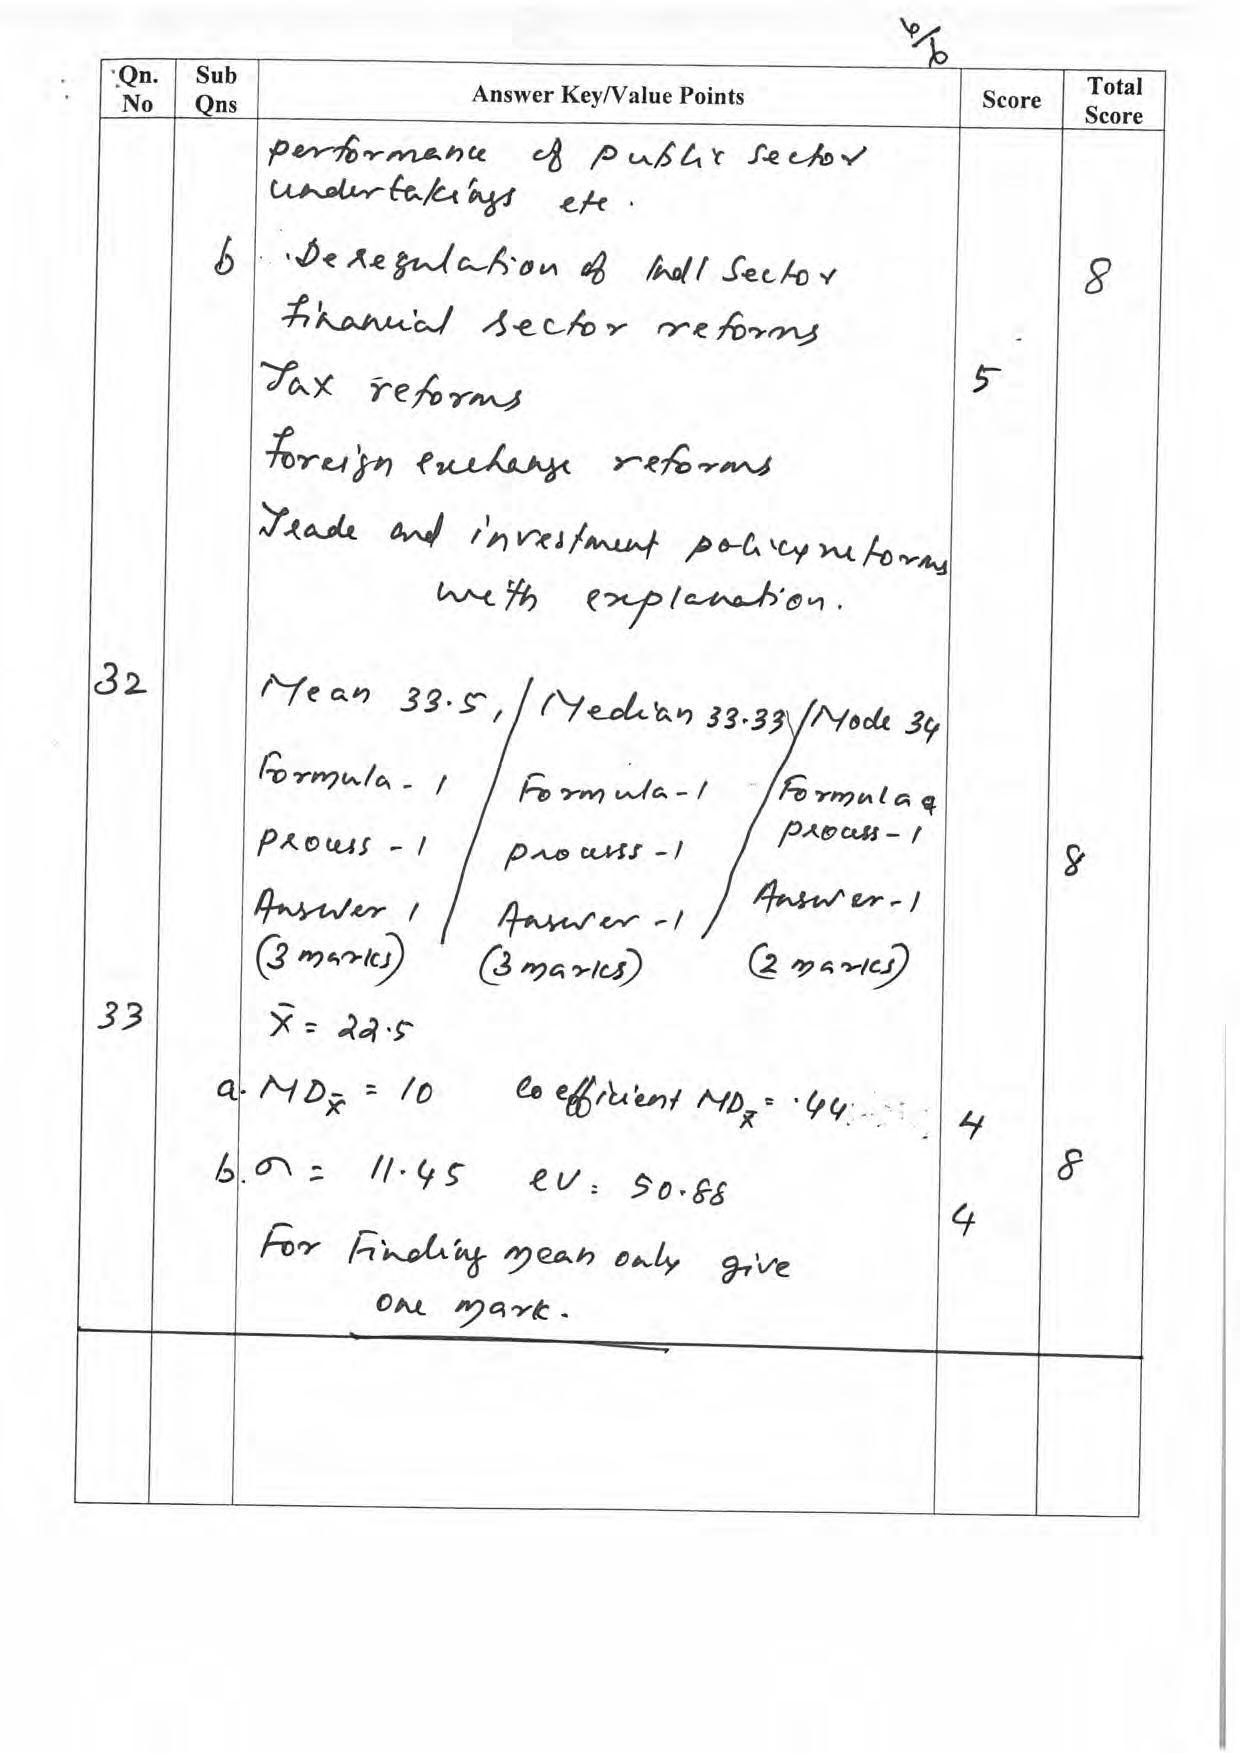 6/6
Qn. No Sub Qns Answer Key/Value Points Score Total Score
performance of public sector
undertakings etc.
b Deregulation of Indl Sector 8
Financial sector reforms
5
Tax reforms
Foreign exchange reforms
Trade and investment policy reforms
with explanation.
32 Mean 33.5, / Median 33.33 / Mode 34
Formula - 1 Formula - 1 Formula &
process - 1 process - 1 process - 1 8
Answer 1 Answer - 1 Answer - 1
(3 marks) (3 marks) (2 marks)
33 x̄ = 22.5
a. MDx̄ = 10 Coefficient MDx̄ = .44 4
b. σ = 11.45 CV = 50.88 8
4
For Finding mean only give
one mark.